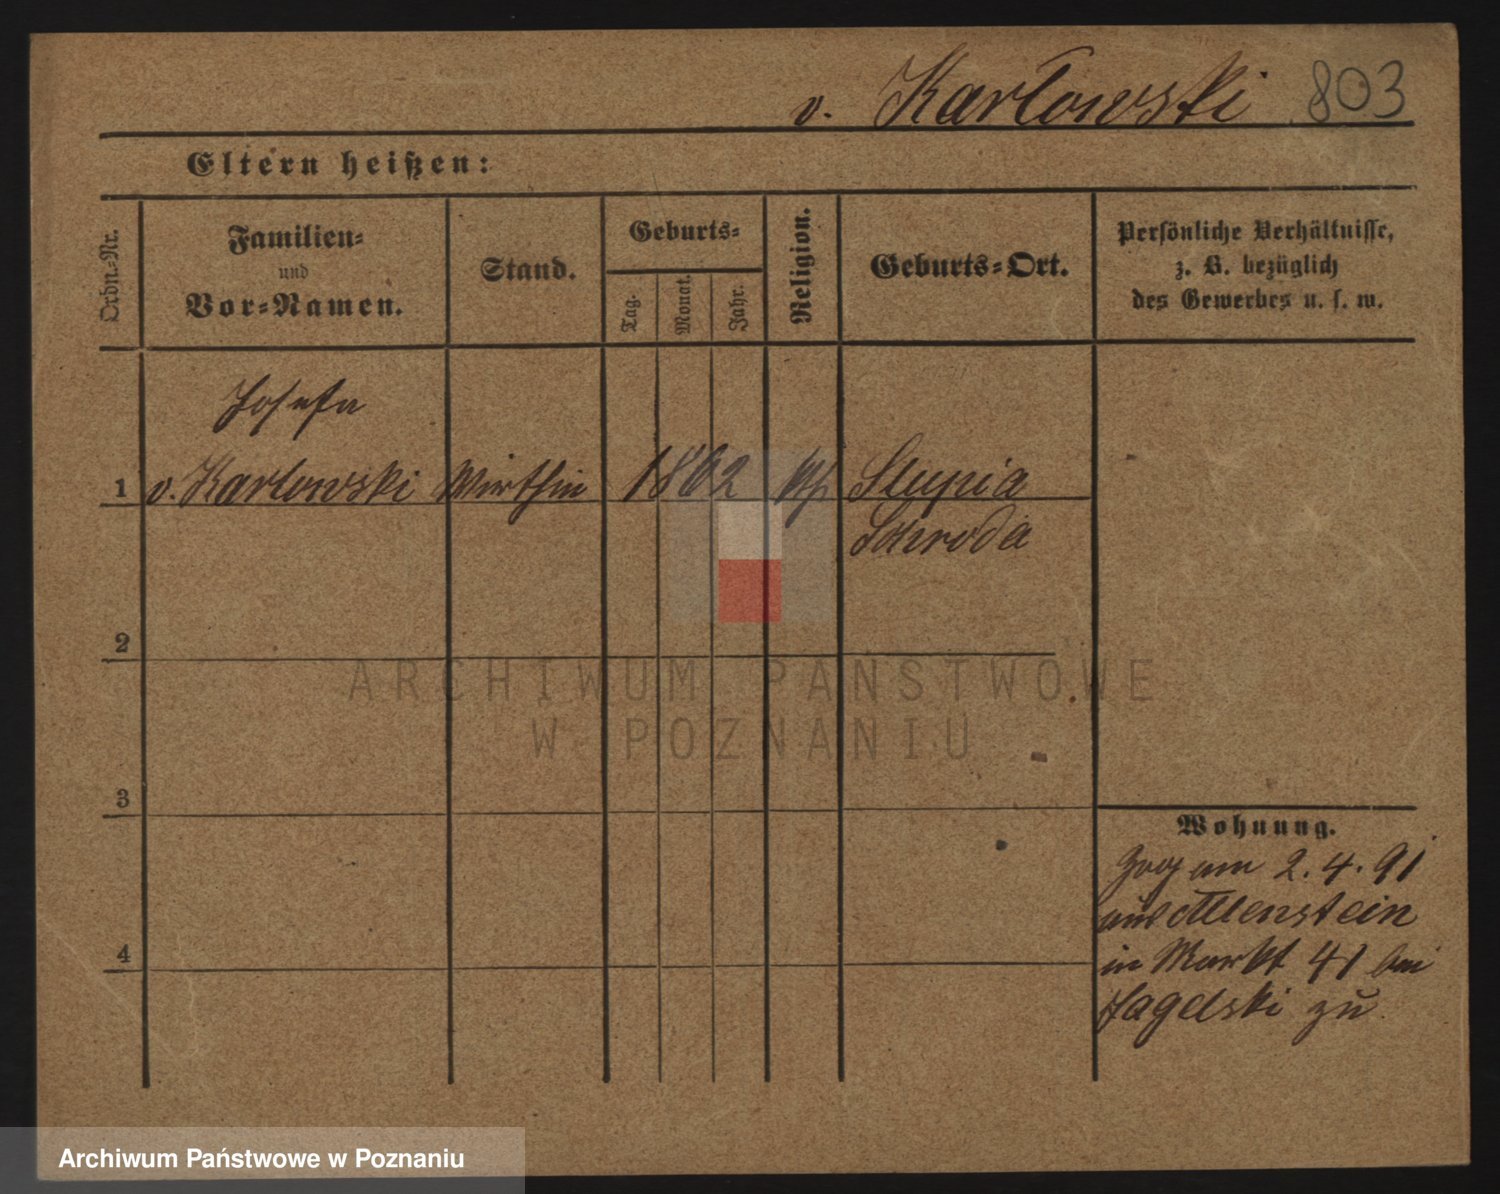 v. Karłowski 803
Eltern heißen:
Ordn.-Nr.
Familien-
und
Vor-Namen.
Stand.
Geburts-
Tag.
Monat.
Jahr.
Religion.
Geburts-Ort.
Persönliche Verhältnisse,
z. B. bezüglich
des Gewerbes u. s. w.
Josefa
1 v. Karlowski Wirthin 1862 kth Slupia
Schroda
2
3
4
Wohnung.
Zog am 2. 4. 91
aus Allenstein
in Markt 41 bei
Jagelski zu.
ARCHIWUM PAŃSTWOWE
W POZNANIU
Archiwum Państwowe w Poznaniu